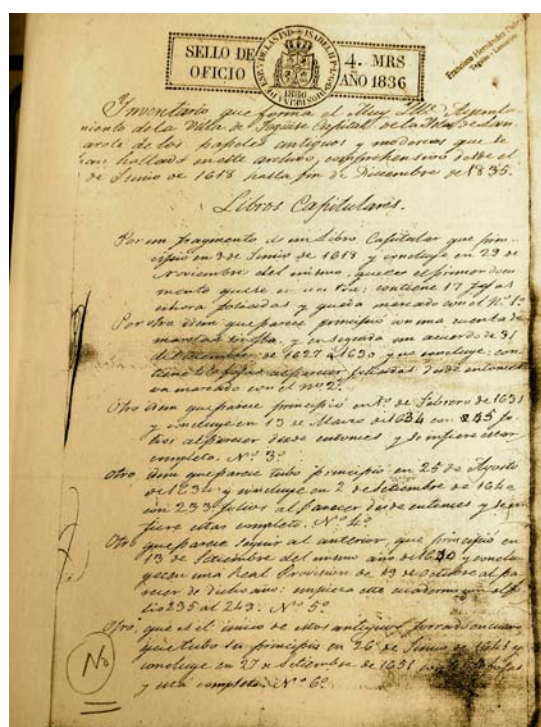 SELLO DE OFICIO
4. MRS AÑO 1836
1836
Francisco Hernández
Teguise - Lanzarote
Inventario que forma el Muy Iltе. Ayunta-
miento de la Villa de Teguise Capital de la Isla de Lan-
zarote de los papeles antiguos y modernos que se
han hallado en este archivo, comprehensivo desde el
de Junio de 1618 hasta fin de Diciembre de 1835.
Libros Capitulares.
Por un fragmento de un Libro Capitular que prin-
cipió en 3 de Junio de 1618 y concluye en 29 de
Noviembre del mismo, que es el primer docu-
mento que se contiene 17 fojas
ahora foliadas y queda marcado con el Nº 1º
Por otro idem que parece principió con una cuenta de
y en seguida un acuerdo de 31
de Diciembre de 1627 a 1630 y no concluye: con-
tiene fojas al parecer foliadas desde entonces
va marcado con el nº 2º
Otro idem que parece principió en 1º de Febrero de 1631
y concluye en 13 de Marzo de 1634 con 245 fo-
lios al parecer desde entonces y se infiere estar
completo. Nº 3º
Otro idem que parece tubo principio en 25 de Agosto
de 1634 y concluye en 2 de Setiembre de 1640
con 233 folios al parecer desde entonces y se in-
fiere estar completo. Nº 4º
Otro que parece seguir al anterior, que principió en
13 de Setiembre del mismo año de 1640 y conclu-
ye con una Real Provision de 19 de Octubre al pa-
recer de dicho año: empieza este cuaderno con el fo-
lio 235 al 243. Nº 5º
Otro que es el único de estos antiguos forrado en cuero
que tubo su principio en 26 de Junio de 1641 y
concluye en 27 de Setiembre de 1651 con fojas
y está completo. Nº 6º
No